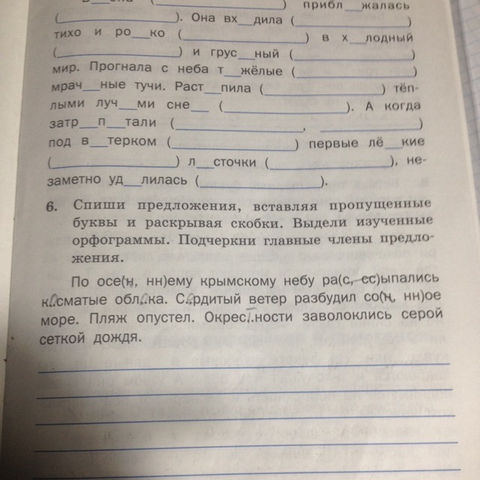 прибл__жалась
(__). Она вх__дила (__)
тихо и ро__ко (__) в х__лодный
(__) и грус__ный (__)
мир. Прогнала с неба т__жёлые (__)
мрач__ные тучи. Раст__пила (__) тёп-
лыми луч__ми сне__ (__). А когда
затр__п__тали (__, __)
под в__терком (__) первые лё__кие
(__) л__сточки (__), не-
заметно уд__лилась (__).
6. Спиши предложения, вставляя пропущенные
буквы и раскрывая скобки. Выдели изученные
орфограммы. Подчеркни главные члены предло-
жения.
По осе(н, нн)ему крымскому небу ра(с, сс)ыпались
косматые облака. Сердитый ветер разбудил со(н, нн)ое
море. Пляж опустел. Окрес..ности заволоклись серой
сеткой дождя.